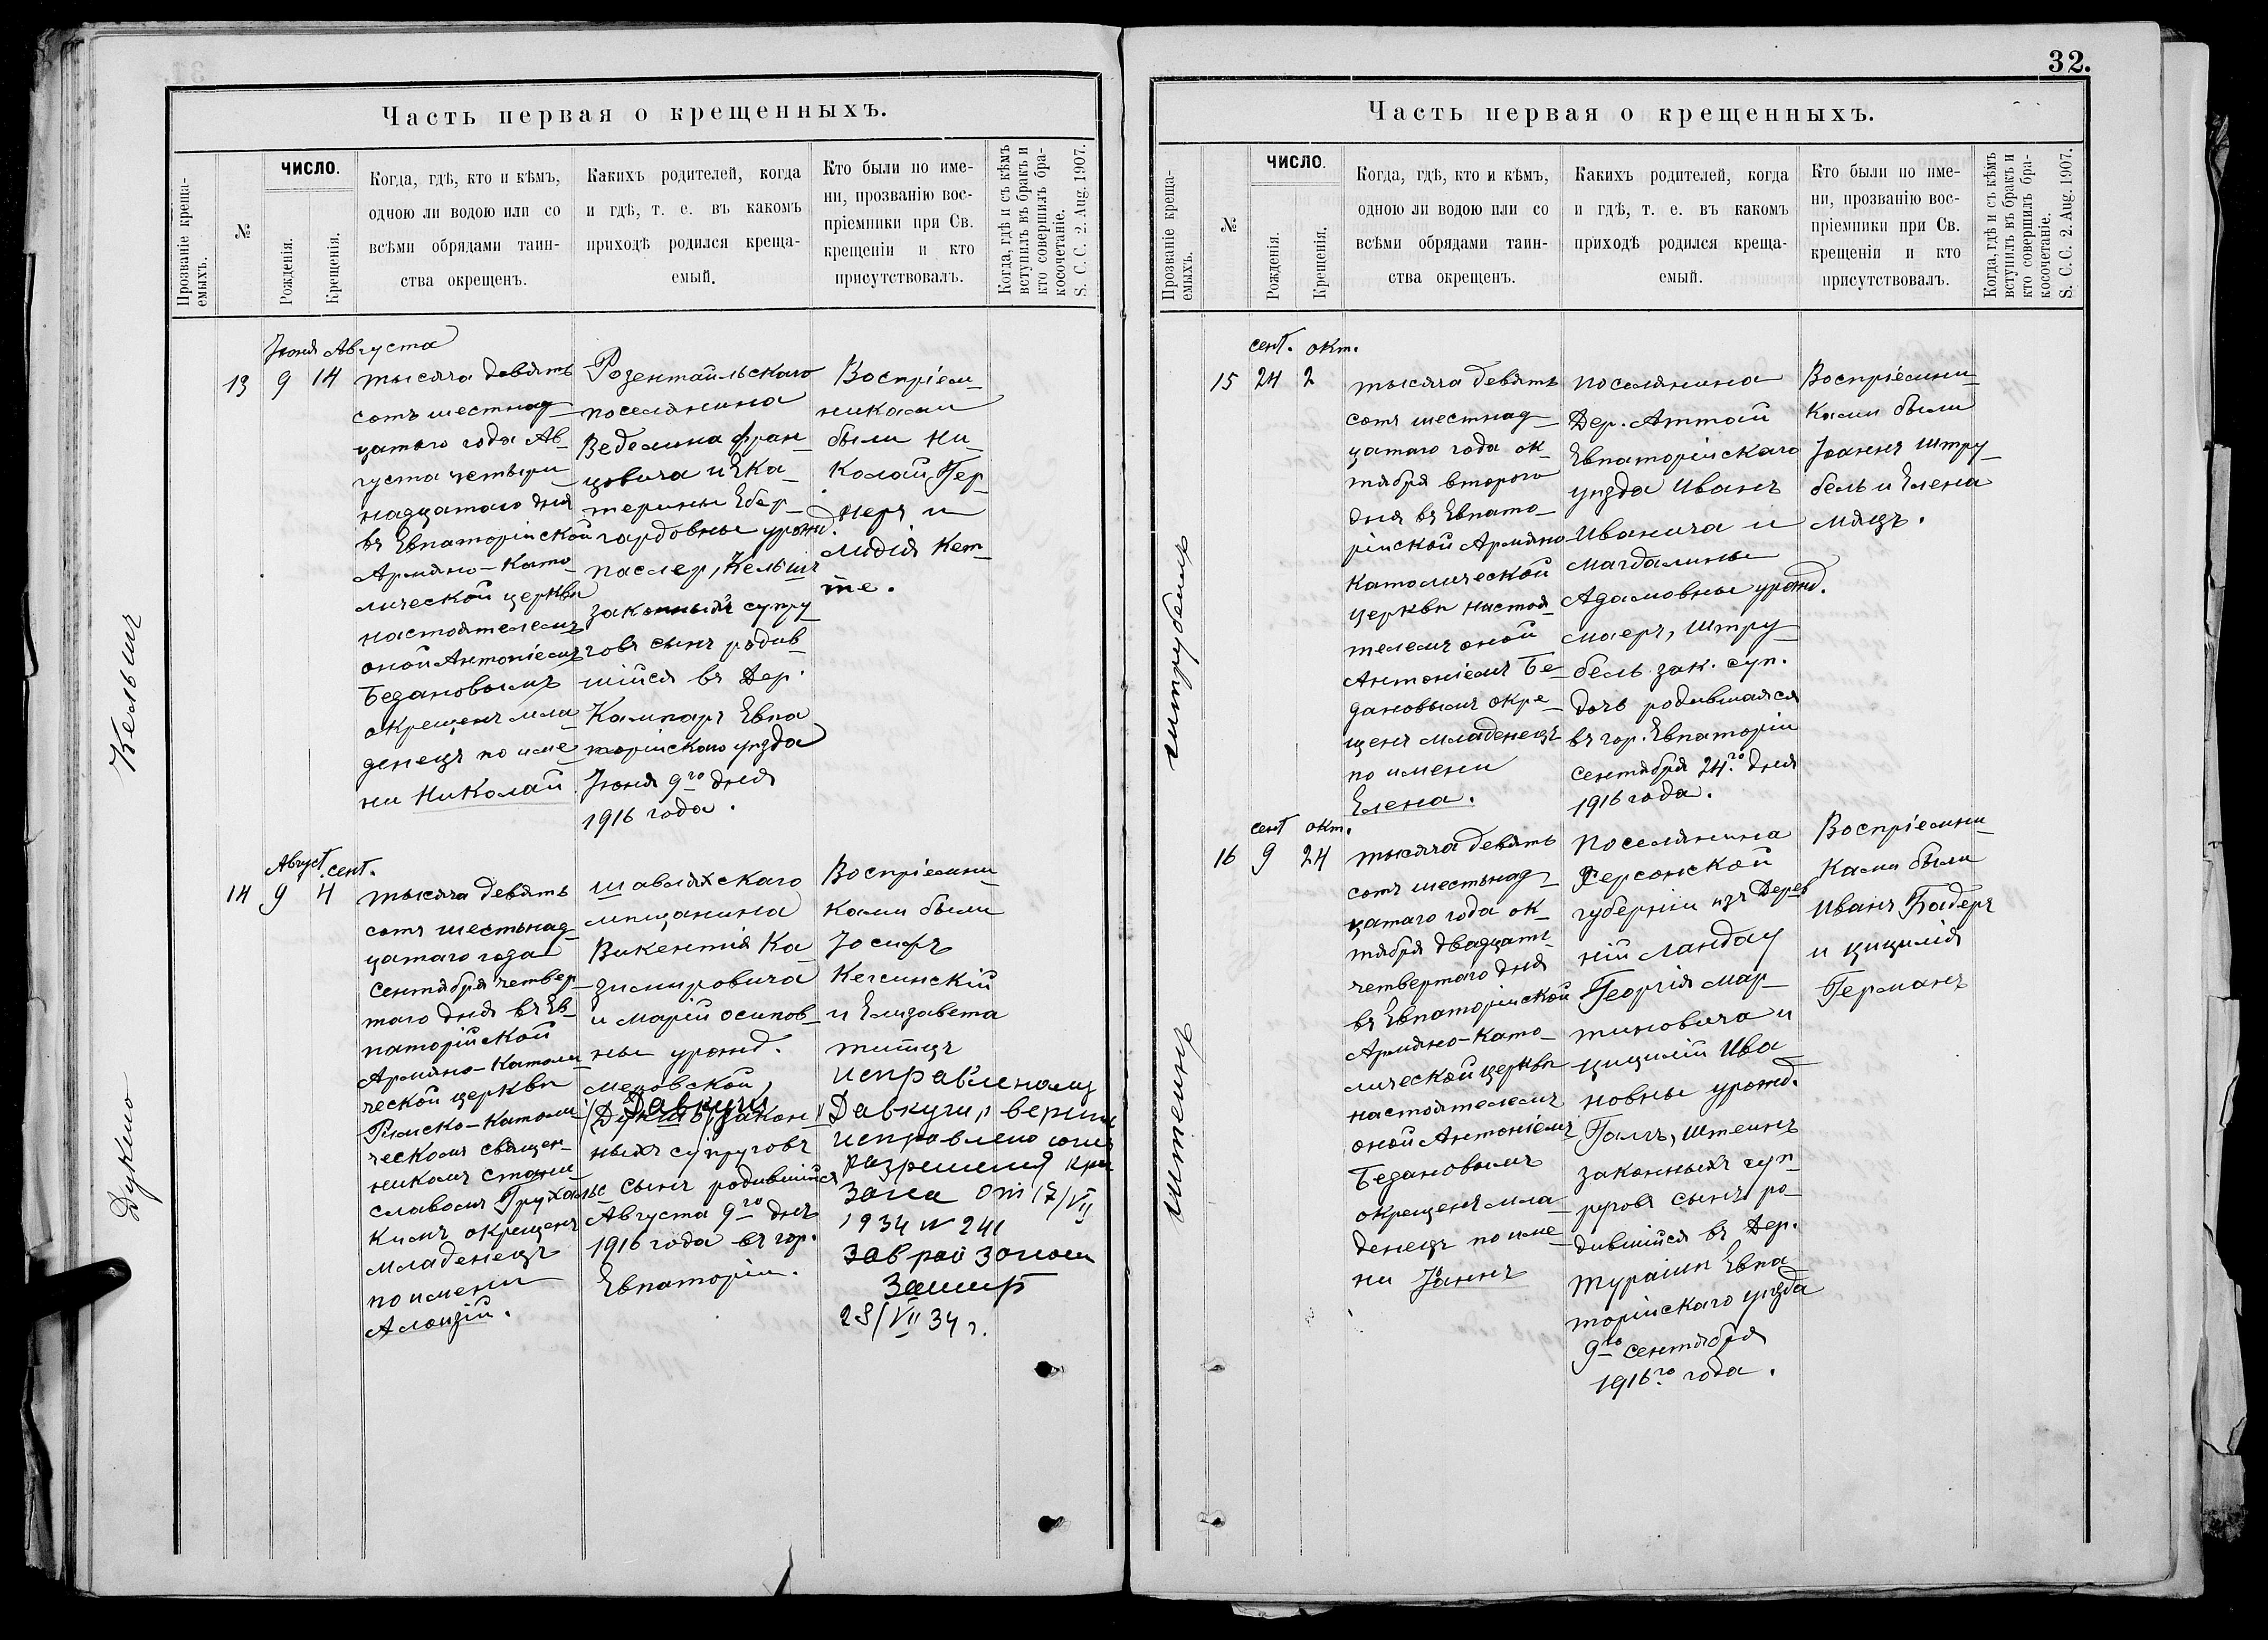 Часть первая о крещенныхъ.
Прозваніе креща-
емыхъ.
№
ЧИСЛО.
Рожденія.
Крещенія.
Когда, гдѣ, кто и кѣмъ,
одною ли водою или со
всѣми обрядами таин-
ства окрещенъ.
Какихъ родителей, когда
и гдѣ, т. е. въ какомъ
приходѣ родился креща-
емый.
Кто были по име-
ни, прозванію вос-
пріемники при Св.
крещеніи и кто
присутствовалъ.
Когда, гдѣ и съ кѣмъ
вступилъ въ бракъ и
кто совершилъ бра-
косочетаніе.
S. C. C. 2. Aug. 1907.
Кельшъ
Іюня Августа
13 9 14
тысяча девять
сотъ шестнад-
цатаго года Ав-
густа четыр-
надцатаго дня
въ Евпаторійской
Армяно-Като-
лической церкви
настоятелемъ
оной Антоніемъ
Бедановымъ
окрещенъ мла-
денецъ по име-
ни Николай
Розентальскаго
поселянина
Веделина Фран-
цовича и Ека-
терины Ебер-
гардовны урожд.
паслер, Кельшъ
законныхъ супру-
говъ сынъ родив-
шійся въ Дер.
Кампаръ Евпа
торійскаго уѣзда
Іюня 9го дня
1916 года.
Воспріем-
никами
были Ни-
колай Гер-
неръ и
Лидія Кет-
те.
Дукшо
Август. сент.
14 9 4
тысяча девять
сотъ шестьнад-
цатаго года
сентября четвер-
таго дня въ Ев-
паторійской
Армяно-Католи-
ческой церкви
Римско-Католи-
ческомъ священ-
никомъ Стани-
славомъ Грухаль-
кимъ окрещенъ
младенецъ
по имени
Алоизій.
Шавляхскаго
мѣщанина
Викентія Ка-
зимировича
и Маріи Осипов-
ны урожд.
Меровской,
Давкуги
законныхъ супруговъ
сынъ родившійся
Августа 9го дня
1916 года въ гор.
Евпаторіи.
Воспріемни-
ками были
Іосифъ
Кегсинскій
и Елизавета
титцъ
исправленому
Давкуги верить
исправлено
разрешения кра
загса от 17/VII
1934 № 241
Зав рай загсом
28/VII 34 г.
32.
Часть первая о крещенныхъ.
Прозваніе креща-
емыхъ.
№
ЧИСЛО.
Рожденія.
Крещенія.
Когда, гдѣ, кто и кѣмъ,
одною ли водою или со
всѣми обрядами таин-
ства окрещенъ.
Какихъ родителей, когда
и гдѣ, т. е. въ какомъ
приходѣ родился креща-
емый.
Кто были по име-
ни, прозванію вос-
пріемники при Св.
крещеніи и кто
присутствовалъ.
Когда, гдѣ и съ кѣмъ
вступилъ въ бракъ и
кто совершилъ бра-
косочетаніе.
S. C. C. 2. Aug. 1907.
Штрубель
сент. окт.
15 24 2
тысяча девять
сотъ шестнад-
цатаго года ок-
тября второго
дня въ Евпато-
рійской Армяно-
Католической
церкви настоя-
телемъ оной
Антоніемъ Бе-
дановымъ окре-
щенъ младенецъ
по имени
Елена.
поселянина
Дер. Аттай
Евпаторійскаго
уѣзда Иванъ
Ивановича и
Магдалины
Адамовны урожд.
Маеръ, Штру-
бель зак. суп.
дочь родившаяся
въ гор. Евпаторіи
сентября 24го дня
1916 года.
Воспріемни-
ками были
Іоаннъ Штру-
бель и Елена
Мяцъ.
Штеинъ
сент окт.
16 9 24
тысяча девять
сотъ шестьнад-
цатаго года ок-
тября двадцать
четвертаго дня
въ Евпаторійской
Армяно-Като-
лической церкви
настоятелемъ
оной Антоніемъ
Бедановымъ
окрещенъ мла-
денецъ по име-
ни Іоаннъ
Поселянина
Херсонской
губерніи изъ Дерев
ній Ландау
Георгія Мар-
тиновича и
Цициліи Ива-
новны урожд.
Галъ, Штеинъ
законныхъ суп-
руговъ сынъ ро-
дившійся въ Дер.
Турашп Евпа-
торійскаго уѣзда
9го сентября
1916го года.
Воспріемни-
ками были
Иванъ Бадеръ
и Цицилія
Германъ